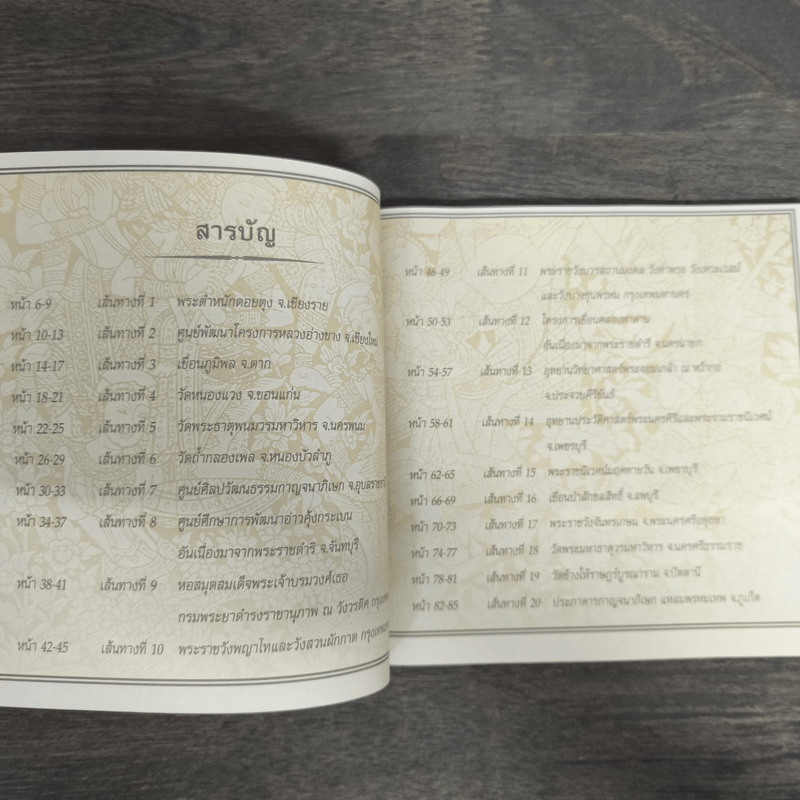 สารบัญ
หน้า 6-9 เส้นทางที่ 1 พระตำหนักดอยตุง จ.เชียงราย
หน้า 10-13 เส้นทางที่ 2 ศูนย์พัฒนาโครงการหลวงอ่างขาง จ.เชียงใหม่
หน้า 14-17 เส้นทางที่ 3 เขื่อนภูมิพล จ.ตาก
หน้า 18-21 เส้นทางที่ 4 วัดหนองแวง จ.ขอนแก่น
หน้า 22-25 เส้นทางที่ 5 วัดพระธาตุพนมวรมหาวิหาร จ.นครพนม
หน้า 26-29 เส้นทางที่ 6 วัดถ้ำกลองเพล จ.หนองบัวลำภู
หน้า 30-33 เส้นทางที่ 7 ศูนย์ศิลปวัฒนธรรมกาญจนาภิเษก
หน้า 34-37 เส้นทางที่ 8 ศูนย์ศึกษาการพัฒนาอ่าวคุ้งกระเบน
อันเนื่องมาจากพระราชดำริ จ.จันทบุรี
หน้า 38-41 เส้นทางที่ 9 หอสมุดสมเด็จพระเจ้าบรมวงศ์เธอ
กรมพระยาดำรงราชานุภาพ ณ วังวรดิศ
หน้า 42-45 เส้นทางที่ 10 พระราชวังพญาไทและวังสวนผักกาด
หน้า 46-49 เส้นทางที่ 11 พระราชวังบวรสถานมงคล วังท่าพระ วังเทวะเวสม์
และวังบางขุนพรหม กรุงเทพมหานคร
หน้า 50-53 เส้นทางที่ 12 โครงการเขื่อนคลองท่าด่าน
อันเนื่องมาจากพระราชดำริ จ.นครนายก
หน้า 54-57 เส้นทางที่ 13 อุทยานวิทยาศาสตร์พระจอมเกล้า ณ หว้ากอ
จ.ประจวบคีรีขันธ์
หน้า 58-61 เส้นทางที่ 14 อุทยานประวัติศาสตร์พระนครคีรีและพระรามราชนิเวศน์
จ.เพชรบุรี
หน้า 62-65 เส้นทางที่ 15 พระราชนิเวศน์มฤคทายวัน จ.เพชรบุรี
หน้า 66-69 เส้นทางที่ 16 เขื่อนป่าสักชลสิทธิ์ จ.ลพบุรี
หน้า 70-73 เส้นทางที่ 17 พระราชวังจันทรเกษม จ.พระนครศรีอยุธยา
หน้า 74-77 เส้นทางที่ 18 วัดพระมหาธาตุวรมหาวิหาร จ.นครศรีธรรมราช
หน้า 78-81 เส้นทางที่ 19 วัดช้างให้ราษฎร์บูรณาราม จ.ปัตตานี
หน้า 82-85 เส้นทางที่ 20 ประภาคารกาญจนาภิเษก แหลมพรหมเทพ จ.ภูเก็ต